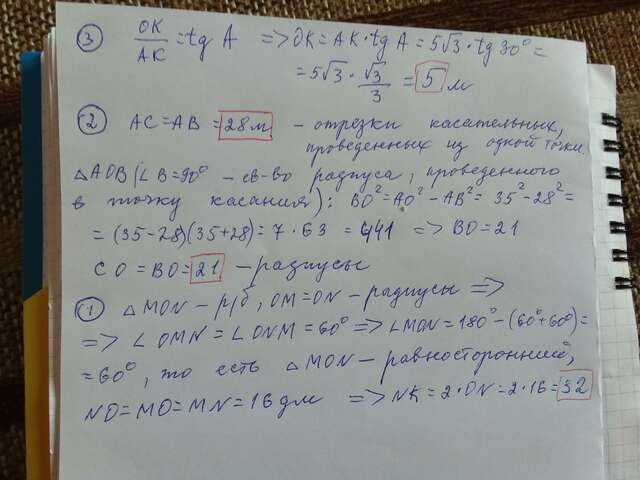 ③ OK/AK = tg A => OK = AK · tg A = 5√3 · tg 30° =
= 5√3 · √3/3 = 5 м
② AC = AB = 28 м - отрезки касательных,
проведенных из одной точки.
△AOB (∠B = 90° - св-во радиуса, проведенного
в точку касания): BO² = AO² - AB² = 35² - 28² =
= (35-28)(35+28) = 7 · 63 = 441 => BO = 21
CO = BO = 21 - радиусы
① △MON - р/б, OM = ON - радиусы =>
=> ∠OMN = ∠ONM = 60° => ∠MON = 180° - (60° + 60°) =
= 60°, то есть △MON - равносторонний,
NO = MO = MN = 16 дм => NK = 2 · ON = 2 · 16 = 32